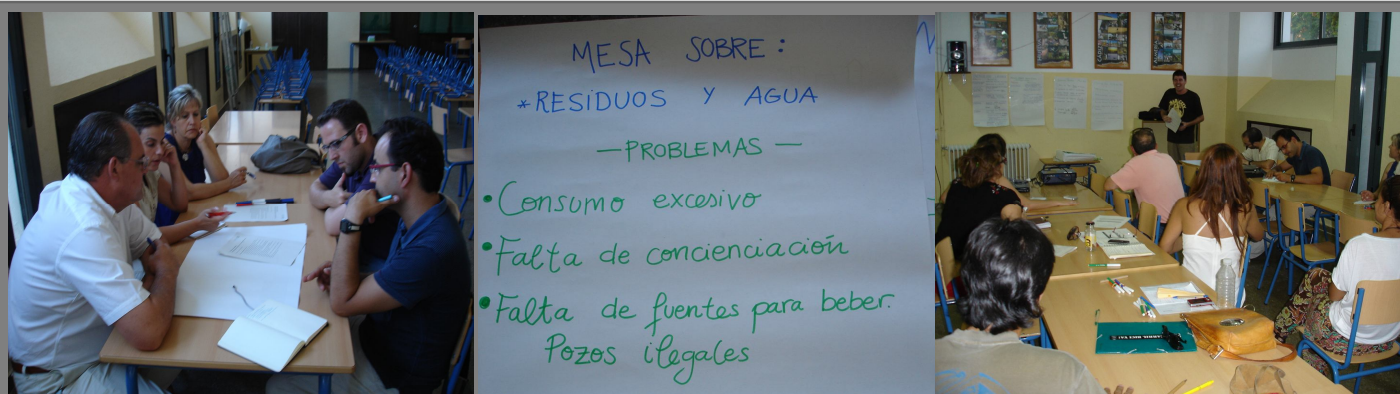 MESA SOBRE:
*RESIDUOS Y AGUA
—PROBLEMAS—
• Consumo excesivo
• Falta de concienciación
• Falta de fuentes para beber.
Pozos ilegales